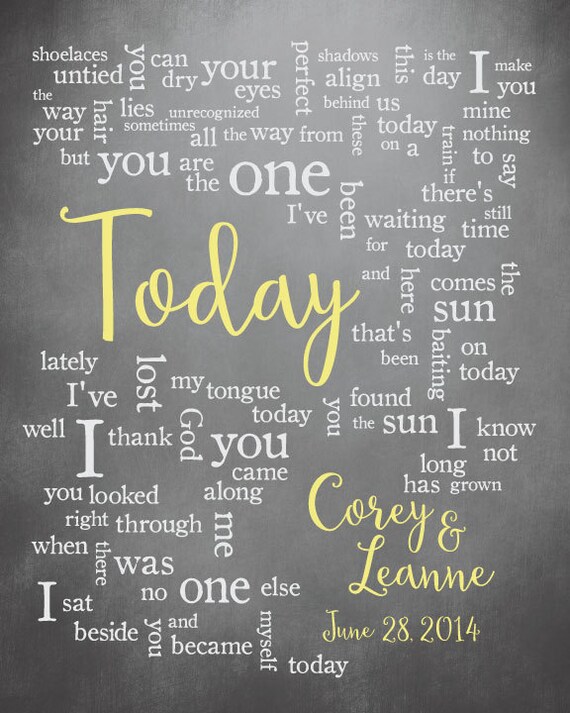 shoelaces untied you can dry your eyes perfect shadows align this is the day I make you
the way your hair lies sometimes unrecognized all the way from behind us these today on a train if mine nothing to say
but you are the one I've been waiting for today there's still time
Today
and here comes the sun that's been baiting on today
lately I've lost my tongue today you found the sun
well I thank God you came along I know not long has grown
you looked right through me when there was no one else
I sat beside you and became myself today
Corey &
Leanne
June 28, 2014